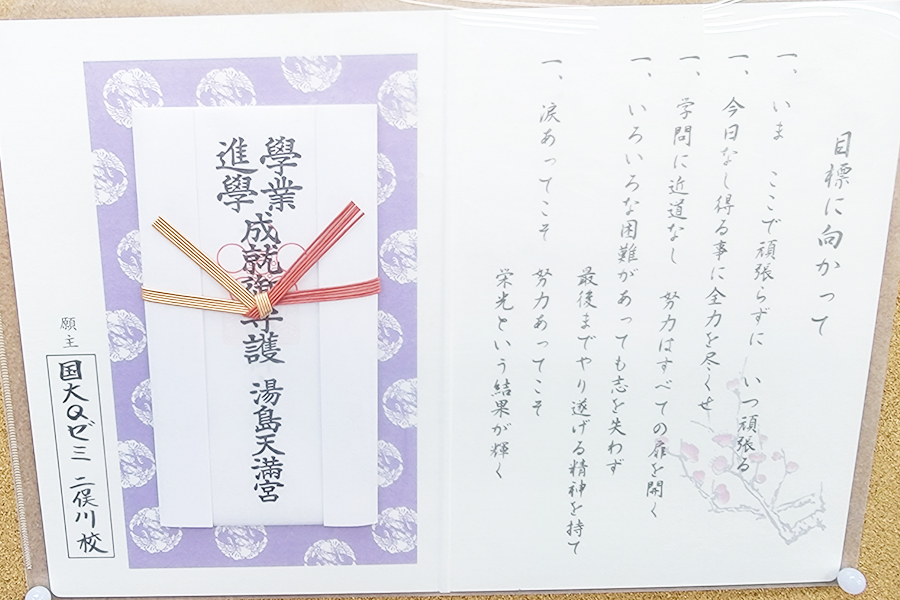 目標に向かって
一、いま ここで頑張らずに いつ頑張る
一、今日なし得る事に全力を尽くせ
一、学問に近道なし 努力はすべての扉を開く
一、いろいろな困難があっても志を失わず
最後までやり遂げる精神を持て
一、涙あってこそ
努力あってこそ
栄光という結果が輝く
學業
進學
成就 護 湯島天満宮
願主
国大Qゼミ 二俣川校